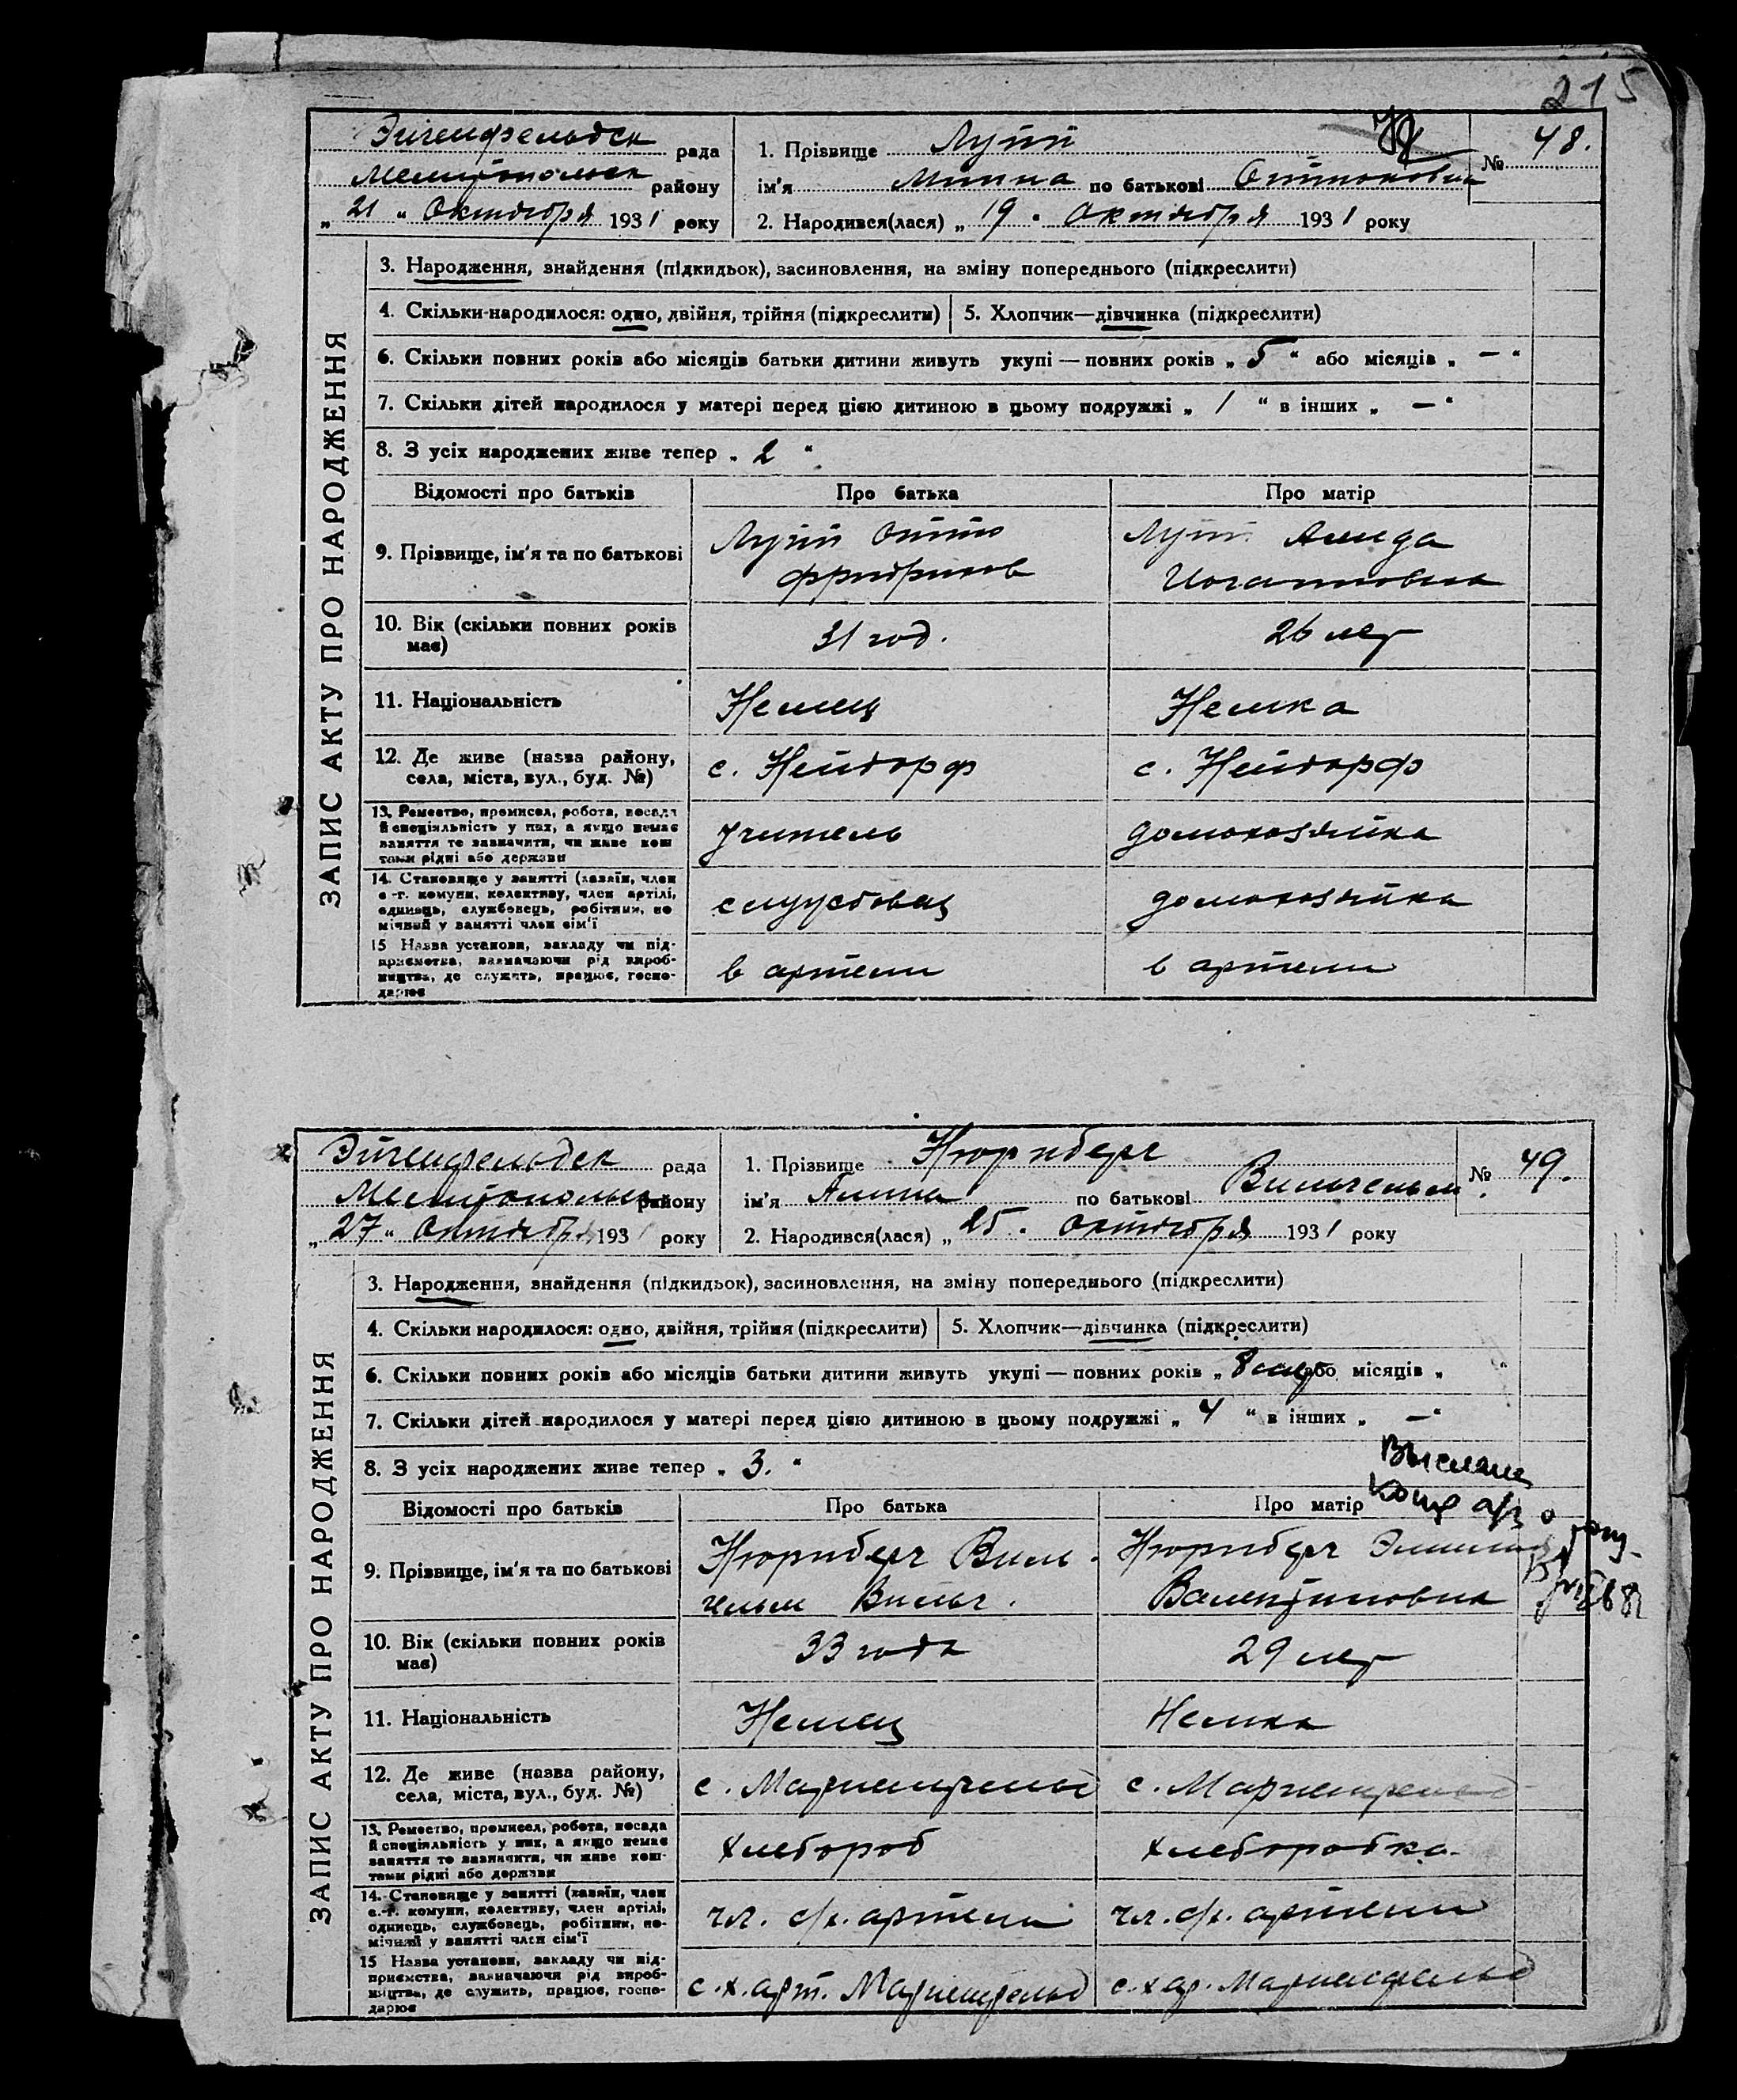 215
Эйгенфельдск рада
Мелитопольск району
„ 21 “ Октября 1931 року
1. Прізвище Лутт
ім'я Минна по батькові Оттоновна
2. Народився(лася) „ 19 “ Октября 1931 року
№ 48.
ЗАПИС АКТУ ПРО НАРОДЖЕННЯ
3. Народження, знайдення (підкидьок), засиновлення, на зміну попереднього (підкреслити)
4. Скільки народилося: одно, двійня, трійня (підкреслити) 5. Хлопчик—дівчинка (підкреслити)
6. Скільки повних років або місяців батьки дитини живуть укупі — повних років „ 5 “ або місяців „ — “
7. Скільки дітей народилося у матері перед цією дитиною в цьому подружжі „ 1 “ в інших „ — “
8. З усіх народжених живе тепер „ 2 “
Відомості про батьків Про батька Про матір
9. Прізвище, ім'я та по батькові
Лутт Отто
Фридрихов
Лутт
Иогановна
10. Вік (скільки повних років
має)
31 год.
26 лет
11. Національність Немец Немка
12. Де живе (назва району,
села, міста, вул., буд. №)
с. Нейдорф
с. Нейдорф
13. Ремество, промисел, робота, посада
й спеціяльність у них, а якщо немає
заняття то зазначити, чи живе кош
тами рідні або держави
учитель
домохозяйка
14. Становище у занятті (хазяїн, член
с.-г. комуни, колективу, член артілі,
одинець, службовець, робітник, по
мічний у занятті член сім'ї
служовец
домохозяйка
15 Назва установи, закладу чи під-
приємства, зазначаючи рід вироб-
ництва, де служить, працює, госпо-
дарює
в артели
в артели
Эйгенфельдск рада
Мелитопольск району
„ 27 “ Октябр. 1931 року
1. Прізвище Нюрнберг
ім'я по батькові Вильгельм.
2. Народився(лася) „ 25 “ Октября 1931 року
№ 49.
ЗАПИС АКТУ ПРО НАРОДЖЕННЯ
3. Народження, знайдення (підкидьок), засиновлення, на зміну попереднього (підкреслити)
4. Скільки народилося: одно, двійня, трійня (підкреслити) 5. Хлопчик—дівчинка (підкреслити)
6. Скільки повних років або місяців батьки дитини живуть укупі — повних років „ 8 лет або місяців „ “
7. Скільки дітей народилося у матері перед цією дитиною в цьому подружжі „ 4 “ в інших „ — “
8. З усіх народжених живе тепер „ 3. “
Відомості про батьків Про батька Про матір
9. Прізвище, ім'я та по батькові
Нюрнберг Виль
гельм Вильг.
Нюрнберг
Валентиновна
10. Вік (скільки повних років
має)
33 года
29 лет
11. Національність Немец Немка
12. Де живе (назва району,
села, міста, вул., буд. №)
с. Мариенфельд
с. Мариенфельд
13. Ремество, промисел, робота, посада
й спеціяльність у них, а якщо немає
заняття то зазначити, чи живе кош-
тами рідні або держави
хлебороб
хлеборобка
14. Становище у занятті (хазяїн, член
с.-г. комуни, колективу, член артілі,
одинець, службовець, робітник, по-
мічний у занятті член сім'ї
чл. с/х. артели
чл. с/х. артели
15 Назва установи, закладу чи під-
приємства, зазначаючи рід вироб-
ництва, де служить, працює, госпо-
дарює
с.х. арт. Мариенфельд
с.х ар. Мариенфельд